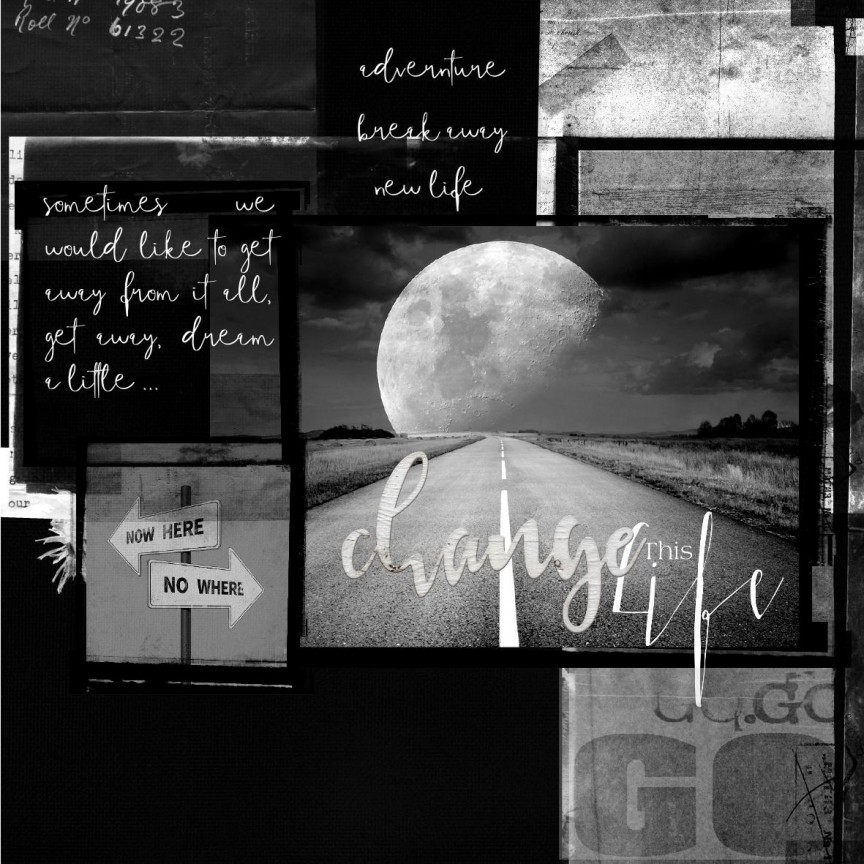 Roll Nº 61322
adventure
break away
new life
sometimes we
would like to get
away from it all,
get away, dream
a little ...
NOW HERE
NO WHERE
change
This
Life
our
GO